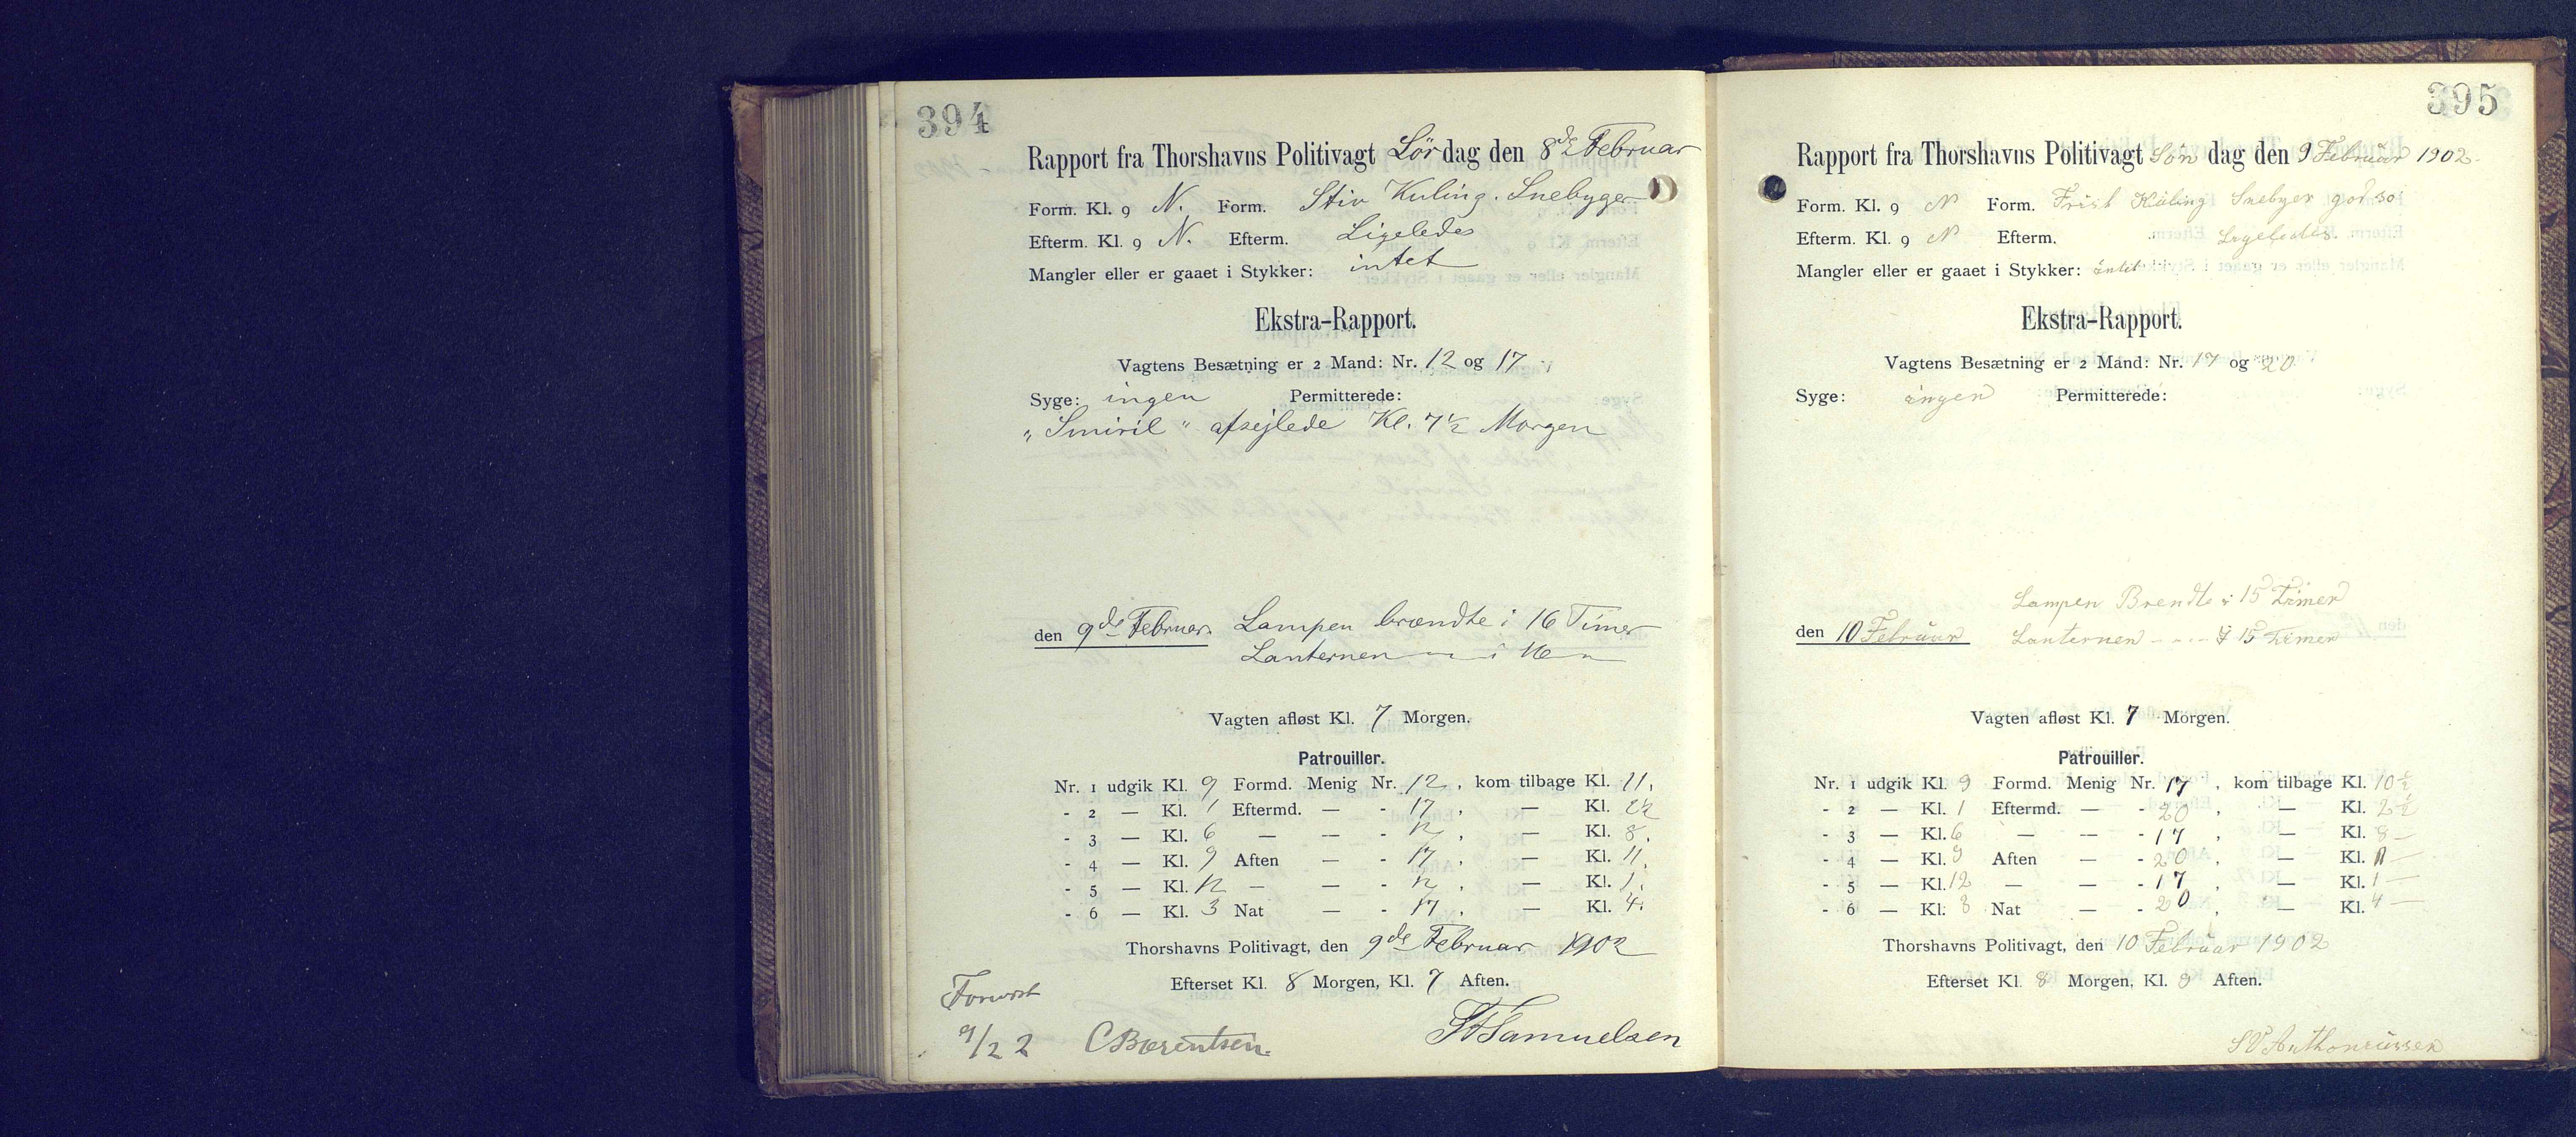 394
Rapport fra Thorshavns Politivagt Lördag den 8de Februar
Form. Kl. 9 N. Form. Stiv Kuling. Snebyger
Efterm. Kl. 9 N. Efterm. Ligeledes
Mangler eller er gaaet i Stykker: intet
Ekstra-Rapport.
Vagtens Besætning er 2 Mand: Nr. 12 og 17
Syge: ingen Permitterede:
„Smiril" afsejlede Kl. 7½ Morgen
den 9de Februar. Lampen brændte i 16 Timer
Lanternen — " — i 16 — " —
Vagten afløst Kl. 7 Morgen.
Patrouiller.
Nr. 1 udgik Kl. 9 Formd. Menig Nr. 12, kom tilbage Kl. 11.
- 2 — Kl. 1 Eftermd. — - 17, — Kl. 2½
- 3 — Kl. 6 — — - 12, — Kl. 8.
- 4 — Kl. 9 Aften — - 17, — Kl. 11.
- 5 — Kl. 12 — — - 12, — Kl. 1.
- 6 — Kl. 3 Nat — - 17, — Kl. 4.
Thorshavns Politivagt, den 9de Februar 1902
Efterset Kl. 8 Morgen, Kl. 7 Aften.
Forevist
9/2 2 C Bærentsen. Samuelsen
395
Rapport fra Thorshavns Politivagt Søn dag den 9 Februar 1902.
Form. Kl. 9 N Form. Frisk Kuling Snebyer god so
Efterm. Kl. 9 N Efterm. Ligeledes.
Mangler eller er gaaet i Stykker: intet
Ekstra-Rapport.
Vagtens Besætning er 2 Mand: Nr. 17 og 20
Syge: ingen Permitterede:
Lampen Brendte i 15 Timer
den 10 Februar Lanternen - - - I 15 Timer
Vagten afløst Kl. 7 Morgen.
Patrouiller.
Nr. 1 udgik Kl. 9 Formd. Menig Nr. 17, kom tilbage Kl. 10½
- 2 — Kl. 1 Eftermd. — - 20, — Kl. 2½
- 3 — Kl. 6 — — - 17, — Kl. 8 —
- 4 — Kl. 9 Aften — - 20, — Kl. 11 —
- 5 — Kl. 12 — — - 17, — Kl. 1 —
- 6 — Kl. 3 Nat — - 20, — Kl. 4 —
Thorshavns Politivagt, den 10 Februar 1902
Efterset Kl. 8 Morgen, Kl. 9 Aften.